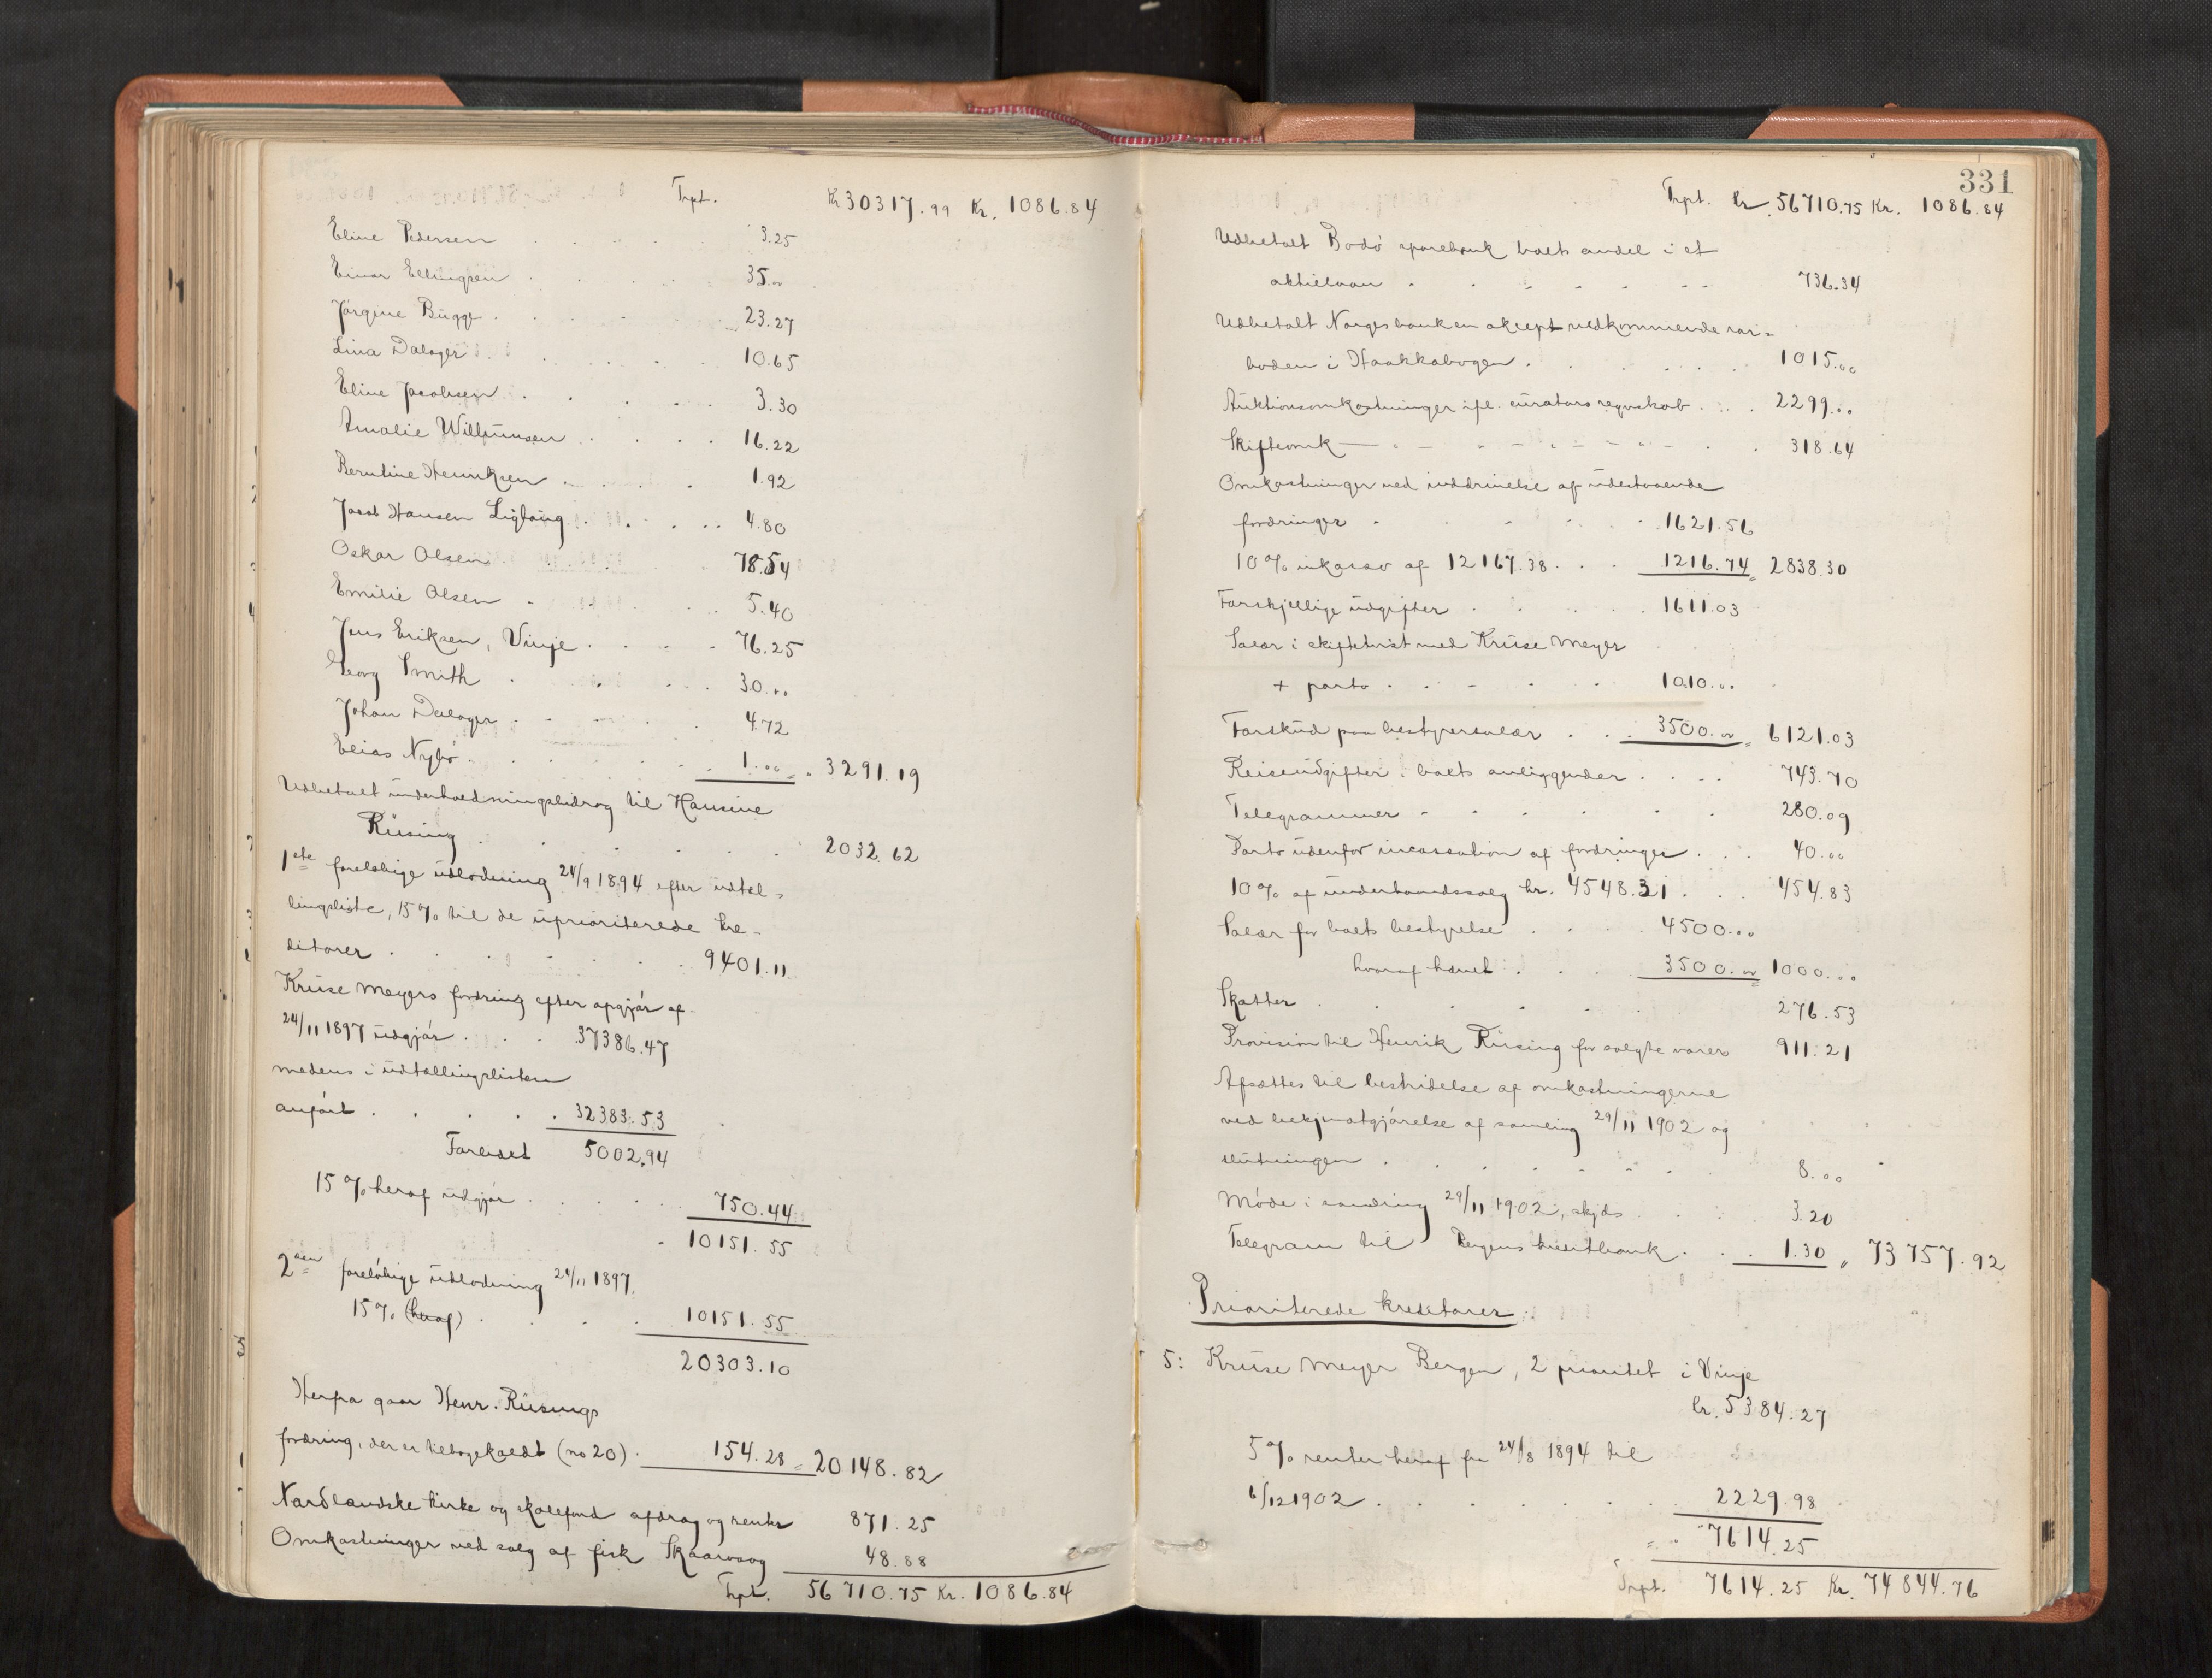 Trpt. Kr 30317.99 Kr. 1086.84
Eline Pedersen 3.25
Einar Ellingsen 35.00
Jørgine Bugge 23.27
Lina Dalager 10.65
Eline Jacobsen 3.30
Amalie Willumsen 16.22
Berntine Henriksen 1.92
Jacob Hansen Ligtäng 4.80
Oskar Olsen 78.54
Emilie Olsen 5.40
Jens Eriksen, Vinje 76.25
Georg Smith 30.00
Johan Dalager 4.72
Elias Nybø 1.00 = 3291.19
Udbetalt underholdningsbidrag til Hansine
Rüsing 2032.62
1ste foreløbige udlodning 24/9 1894 efter udtel-
lingsliste, 15% til de upriorterede kre-
ditorer 9401.11
Krüse Meyers fordring efter opgjør af
24/11 1897 udgjør 37386.47
medens i udtællingslisten
anført 32383.53
Forskel 5002.94
15% heraf udgjør 750.44
10151.55
2den foreløbige udlodning 24/11 1897
15% (heraf) 10151.55
20303.10
Herfra gaar Henr. Rüsings
fordring, der er tilbagekaldt (no 20) 154.28 = 20148.82
Nordlandske kirke og skolefond afdrag og renter 871.25
Omkostninger ved salg af fisk Skaarvaag 48.88
Trpt. 56710.75 Kr. 1086.84
331
Trpt. kr. 56710.75 Kr. 1086.84
Udbetalt Bodø sparebank boets andel i et
aktielaan 736.34
Udbetalt Norgesbanken aksept vedkommende ror-
boden i Haakkabogen 1015.00
Auktionsomkostninger ifl. curators regnskab 2299.00
Skifteomk — 318.64
Omkostninger ved inddrivelse af udestaaende
fordringer 1621.56
10% inkasso af 12167.38 1216.74 = 2838.30
Forskjellige udgifter 1611.03
Salær i skiftetvist med Krüse Meyer
+ porto 1010.00
Forskud paa bestyrersalær 3500.00 = 6121.03
Reiseudgifter i boets anliggender 743.70
Telegrammer 280.09
Porto udenfor incassation af fordringer 40.00
10% af underhaandssalg kr. 4548.31 454.83
Salær for boets bestyrelse 4500.00
hvoraf hævet 3500.00 1000.00
Skatter 276.53
Provision til Henrik Rüsing for solgte varer 911.21
Afsættes til bestridelse af omkostningerne
ved bekjendtgjørelse af samling 29/11 1902 og
slutningen 8.00
Møde i samling 29/11 1902, skjds 3.20
Telegram til Bergens kreditbank 1.30 " 73757.92
Prioriterede kreditorer:
5: Krüse Meyer Bergen, 2 prioritet i Vinje
kr. 5384.27
5% renter heraf fra 24/8 1894 til
6/12 1902 2229.98
7614.25
Trpt. 7614.25 Kr. 74844.76